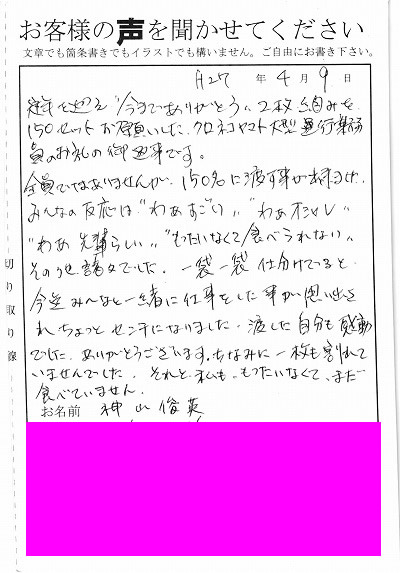 お客様の声を聞かせてください
文章でも箇条書きでもイラストでも構いません。ご自由にお書き下さい。
H27 年 4 月 9 日
定年を迎え"今までありがとう"2枚組みを
150セットお願いした、クロネコヤマト大型運行業務
員のお礼の御返事です。
全員ではありませんが、150名に渡す事が出来ました。
みんなの反応は"わぁすごい""わぁオシャレ"
"わぁ先輩らしい""もったいなくて食べられない"
その他諸々でした。一袋一袋仕分けていると
今迄みんなと一緒に仕事をした事が思い出さ
れちょっとセンチになりました。渡した自分も感動
でした。ありがとうございます。ちなみに一枚も割れて
いませんでした。それと私も、もったいなくて、まだ
食べていません。
お名前 神山俊英
切り取り線